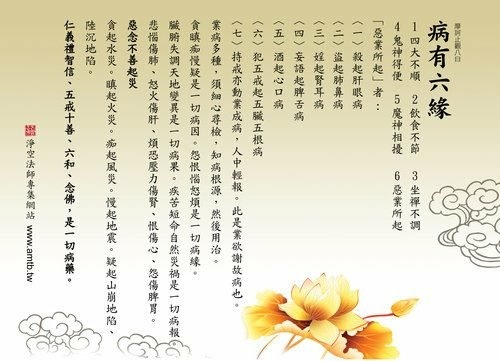 摩訶止觀八曰
病有六緣
1 四大不順　2 飲食不節　3 坐禪不調
4 鬼神得便　5 魔神相擾　6 惡業所起
「惡業所起」者：
〈一〉殺起肝眼病
〈二〉盜起肺鼻病
〈三〉婬起腎耳病
〈四〉妄語起脾舌病
〈五〉酒起心口病
〈六〉犯五戒起五臟五根病
〈七〉持戒亦動業成病，人中輕報。此是業欲謝故病也。
業病多種，須細心尋檢，知病根源，然後用治。
貪瞋痴慢疑是一切病因。怨恨惱怒煩是一切病緣。
臟腑失調天地變異是一切病果。疾苦短命自然災禍是一切病報
悲惱傷肺、怒火傷肝、煩恐壓力傷腎、恨傷心、怨傷脾胃。
惡念不善起災
貪起水災。瞋起火災。痴起風災。慢起地震。疑起山崩地陷、
陸沉地陷。
仁義禮智信、五戒十善、六和、念佛，是一切病藥。
淨空法師專集網站　www.amtb.tw